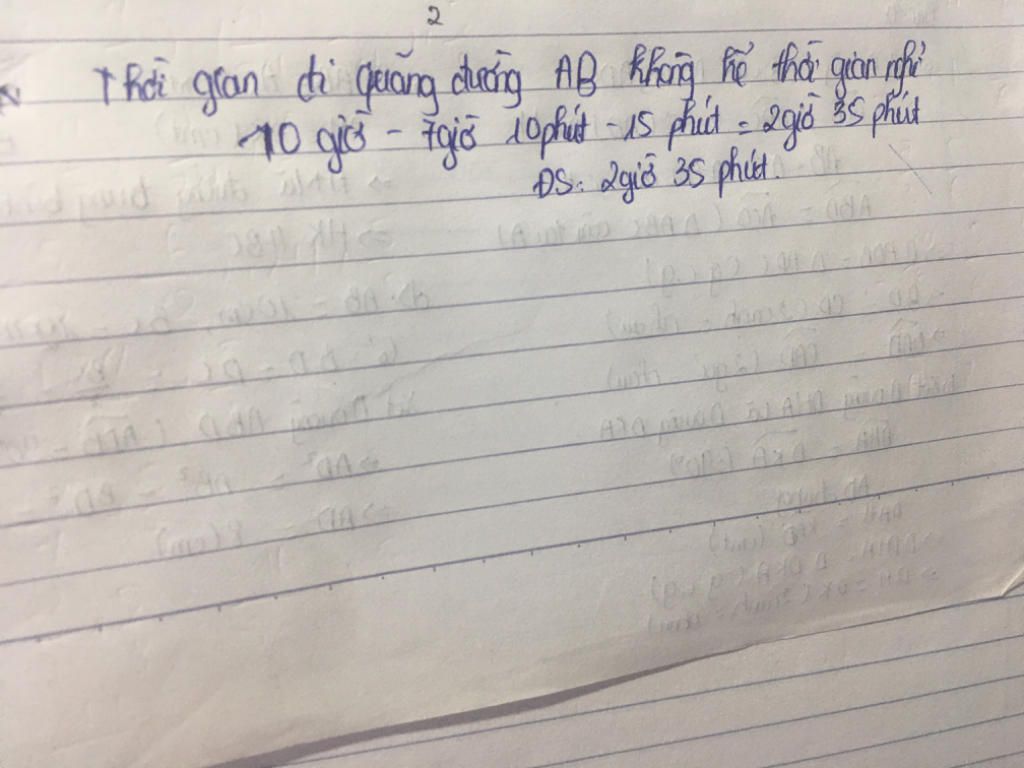 2
Thời gian đi quãng đường AB không kể thời gian nghỉ
10 giờ - 7giờ 10phút - 15 phút = 2giờ 35 phút
ĐS: 2giờ 35 phút.